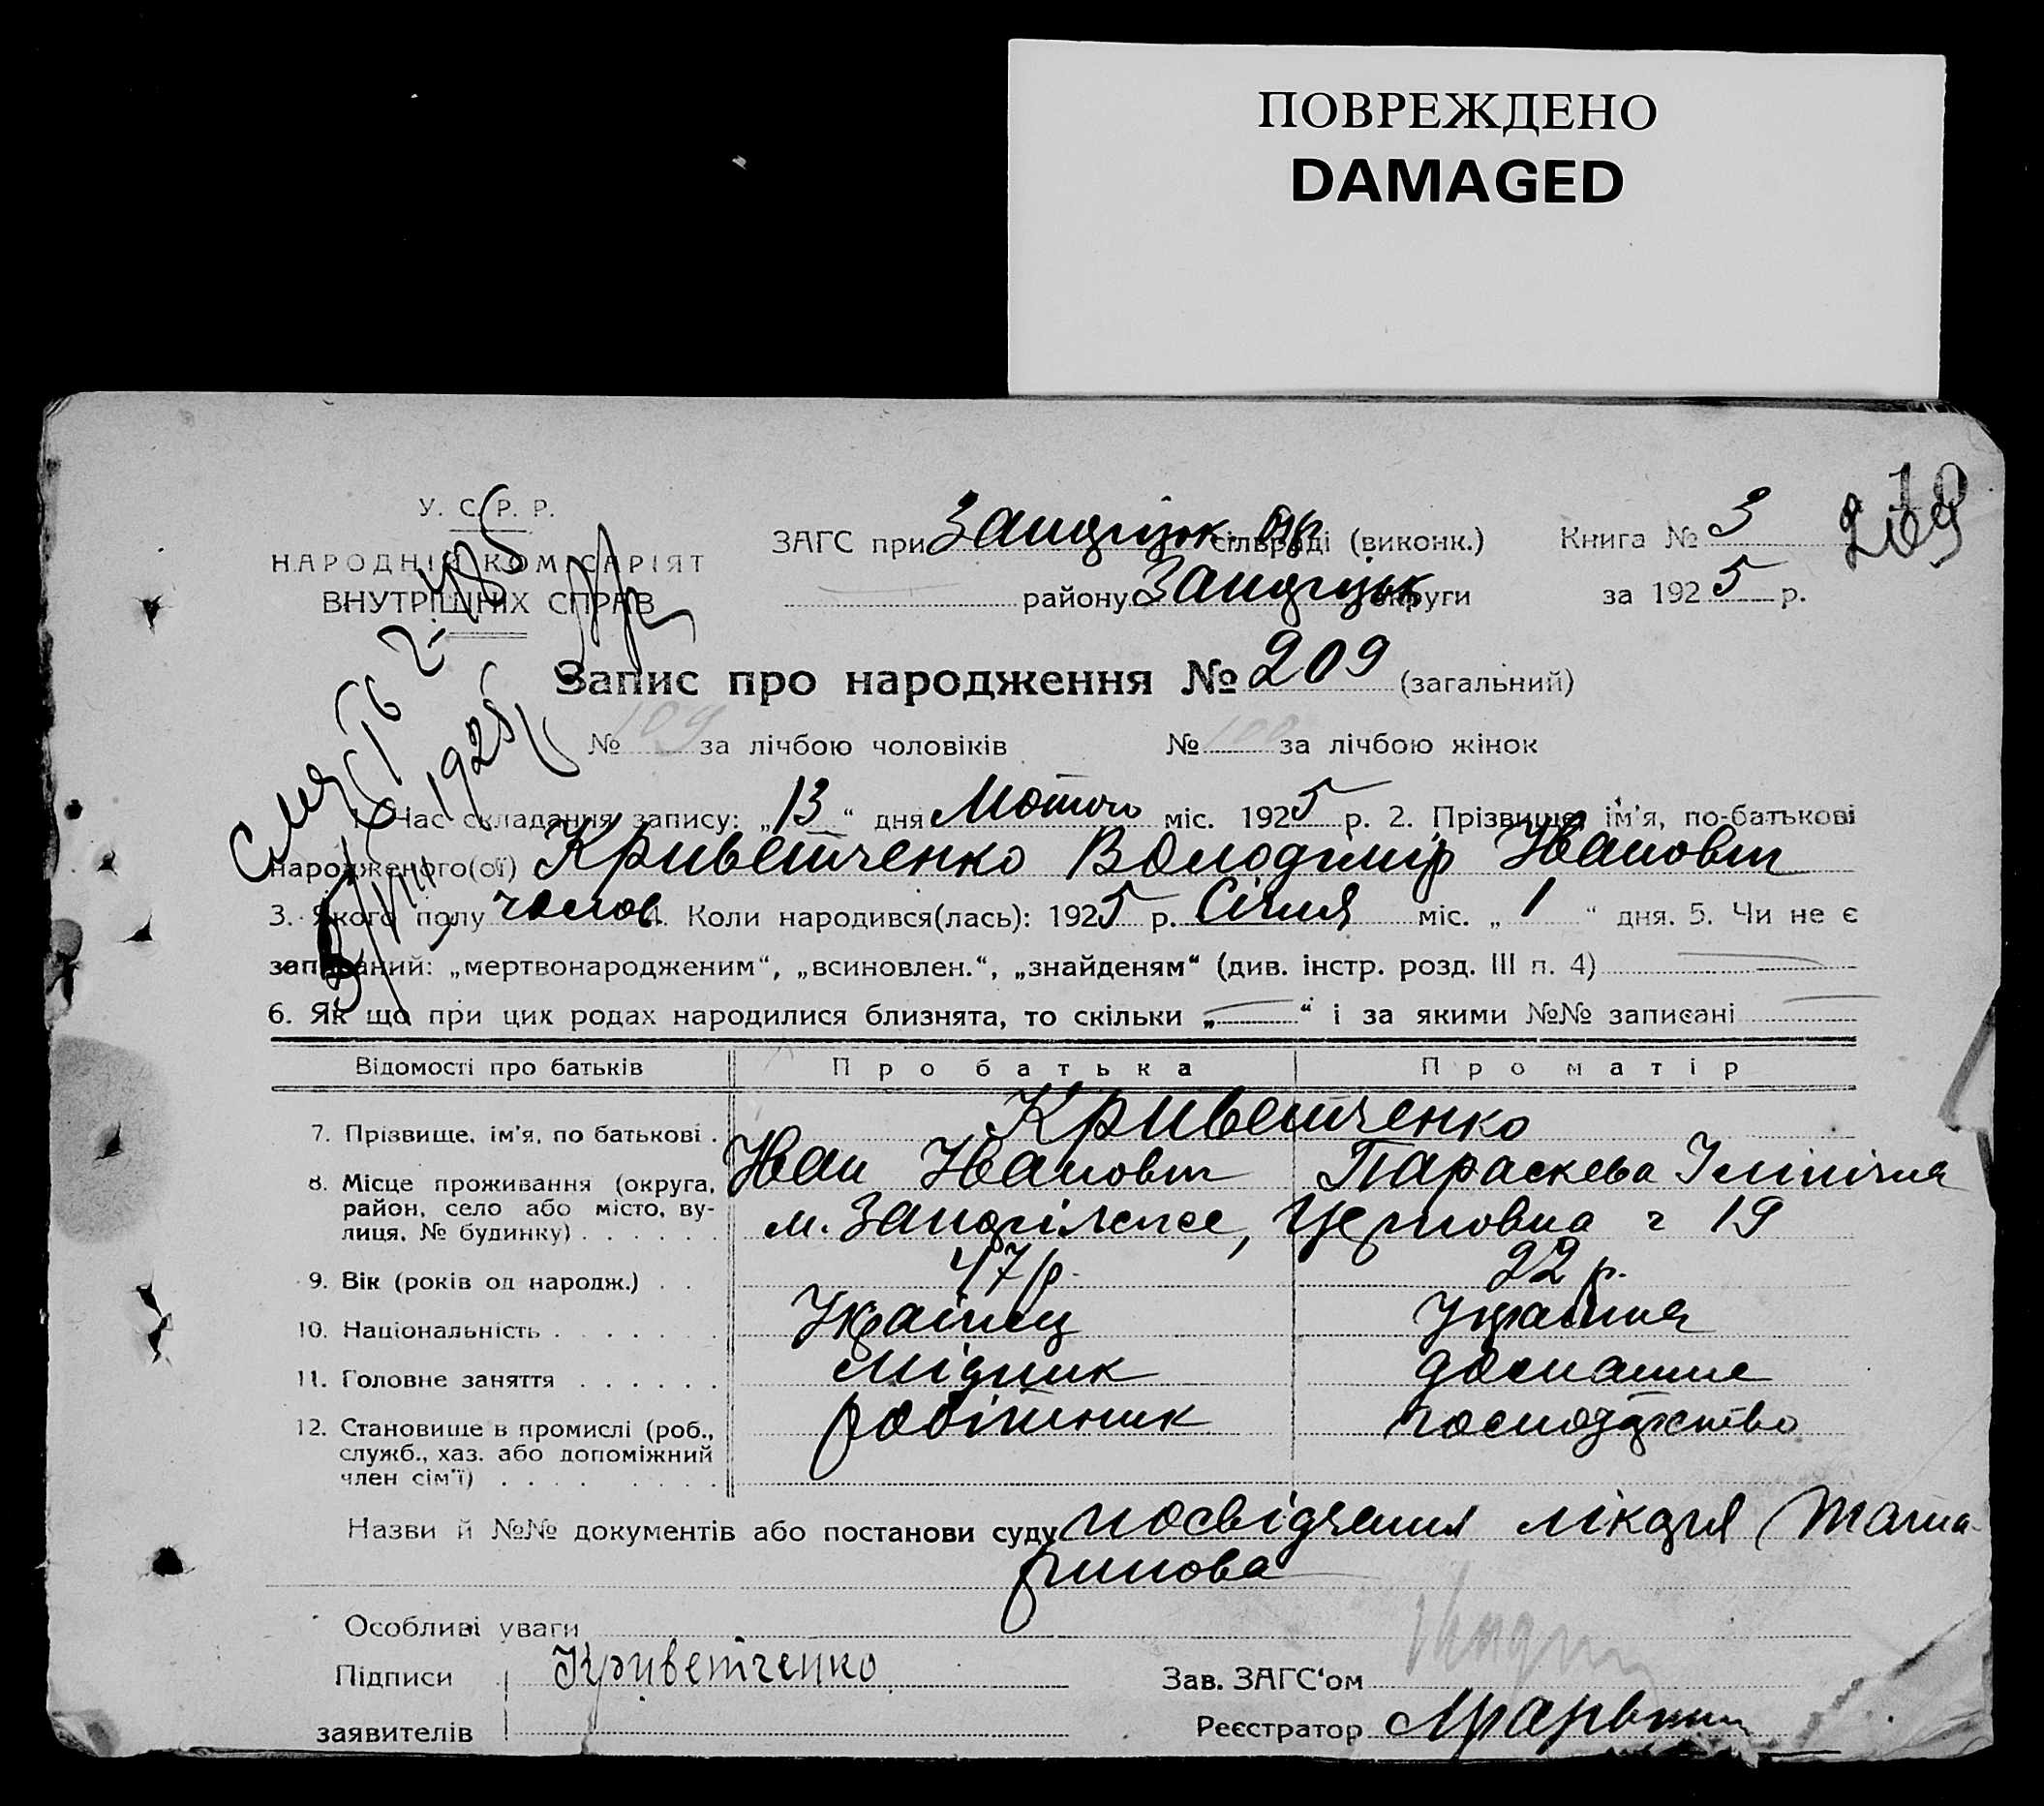 ПОВРЕЖДЕНО
DAMAGED
У. С. Р. Р.
НАРОДНІЙ КОМІСАРІЯТ
ВНУТРІШНІХ СПРАВ
ЗАГС при сільраді (виконк.)
району округи
Книга № 3
за 1925 р.
209
Запис про народження № 209 (загальний)
№ 109 за лічбою чоловіків № 100 за лічбою жінок
1. Час складання запису: „13“ дня Лютого міс. 1925 р. 2. Прізвище, ім'я, по-батькові
народженого(ої) Криветченко Володімір Іванович
3. Якого полу чолов 4. Коли народився(лась): 1925 р. Січня міс. „1“ дня. 5. Чи не є
записаний: „мертвонародженим“, „всиновлен.“, „знайденям“ (див. інстр. розд. III п. 4)
6. Як що при цих родах народилися близнята, то скільки „ “ і за якими №№ записані
Відомості про батьків Про батька Про матір
7. Прізвище, ім'я, по батькові . Криветченко
Іван Іванович Параскева
8. Місце проживання (округа, район, село або місто, вулиця, № будинку) . . . . . . м. , 19
9. Вік (років од народж.) . . 47 р. 22 р.
10. Національність . . . . . . . Українец Українка
11. Головне заняття . . . . . . Мідник домашнє
12. Становище в промислі (роб., служб., хаз. або допоміжний член сім'ї) . . . . робітник господарство
Назви й №№ документів або постанови суду посвідчення лікаря
Особливі уваги
Підписи Криветченко
Зав. ЗАГС'ом
заявителів
Реєстратор
1925